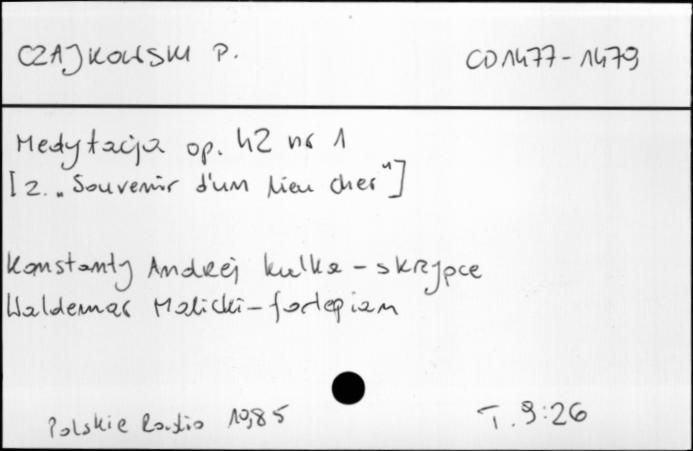 CZAJKOWSKI P. CD 1477-1479
Medytacja op. 42 nr 1
[z. „Souvenir d'un lieu cher"]
Konstanty Andrzej Kulka - skrzypce
Waldemar Malicki - fortepian
Polskie Radio 1985 T. 9:26